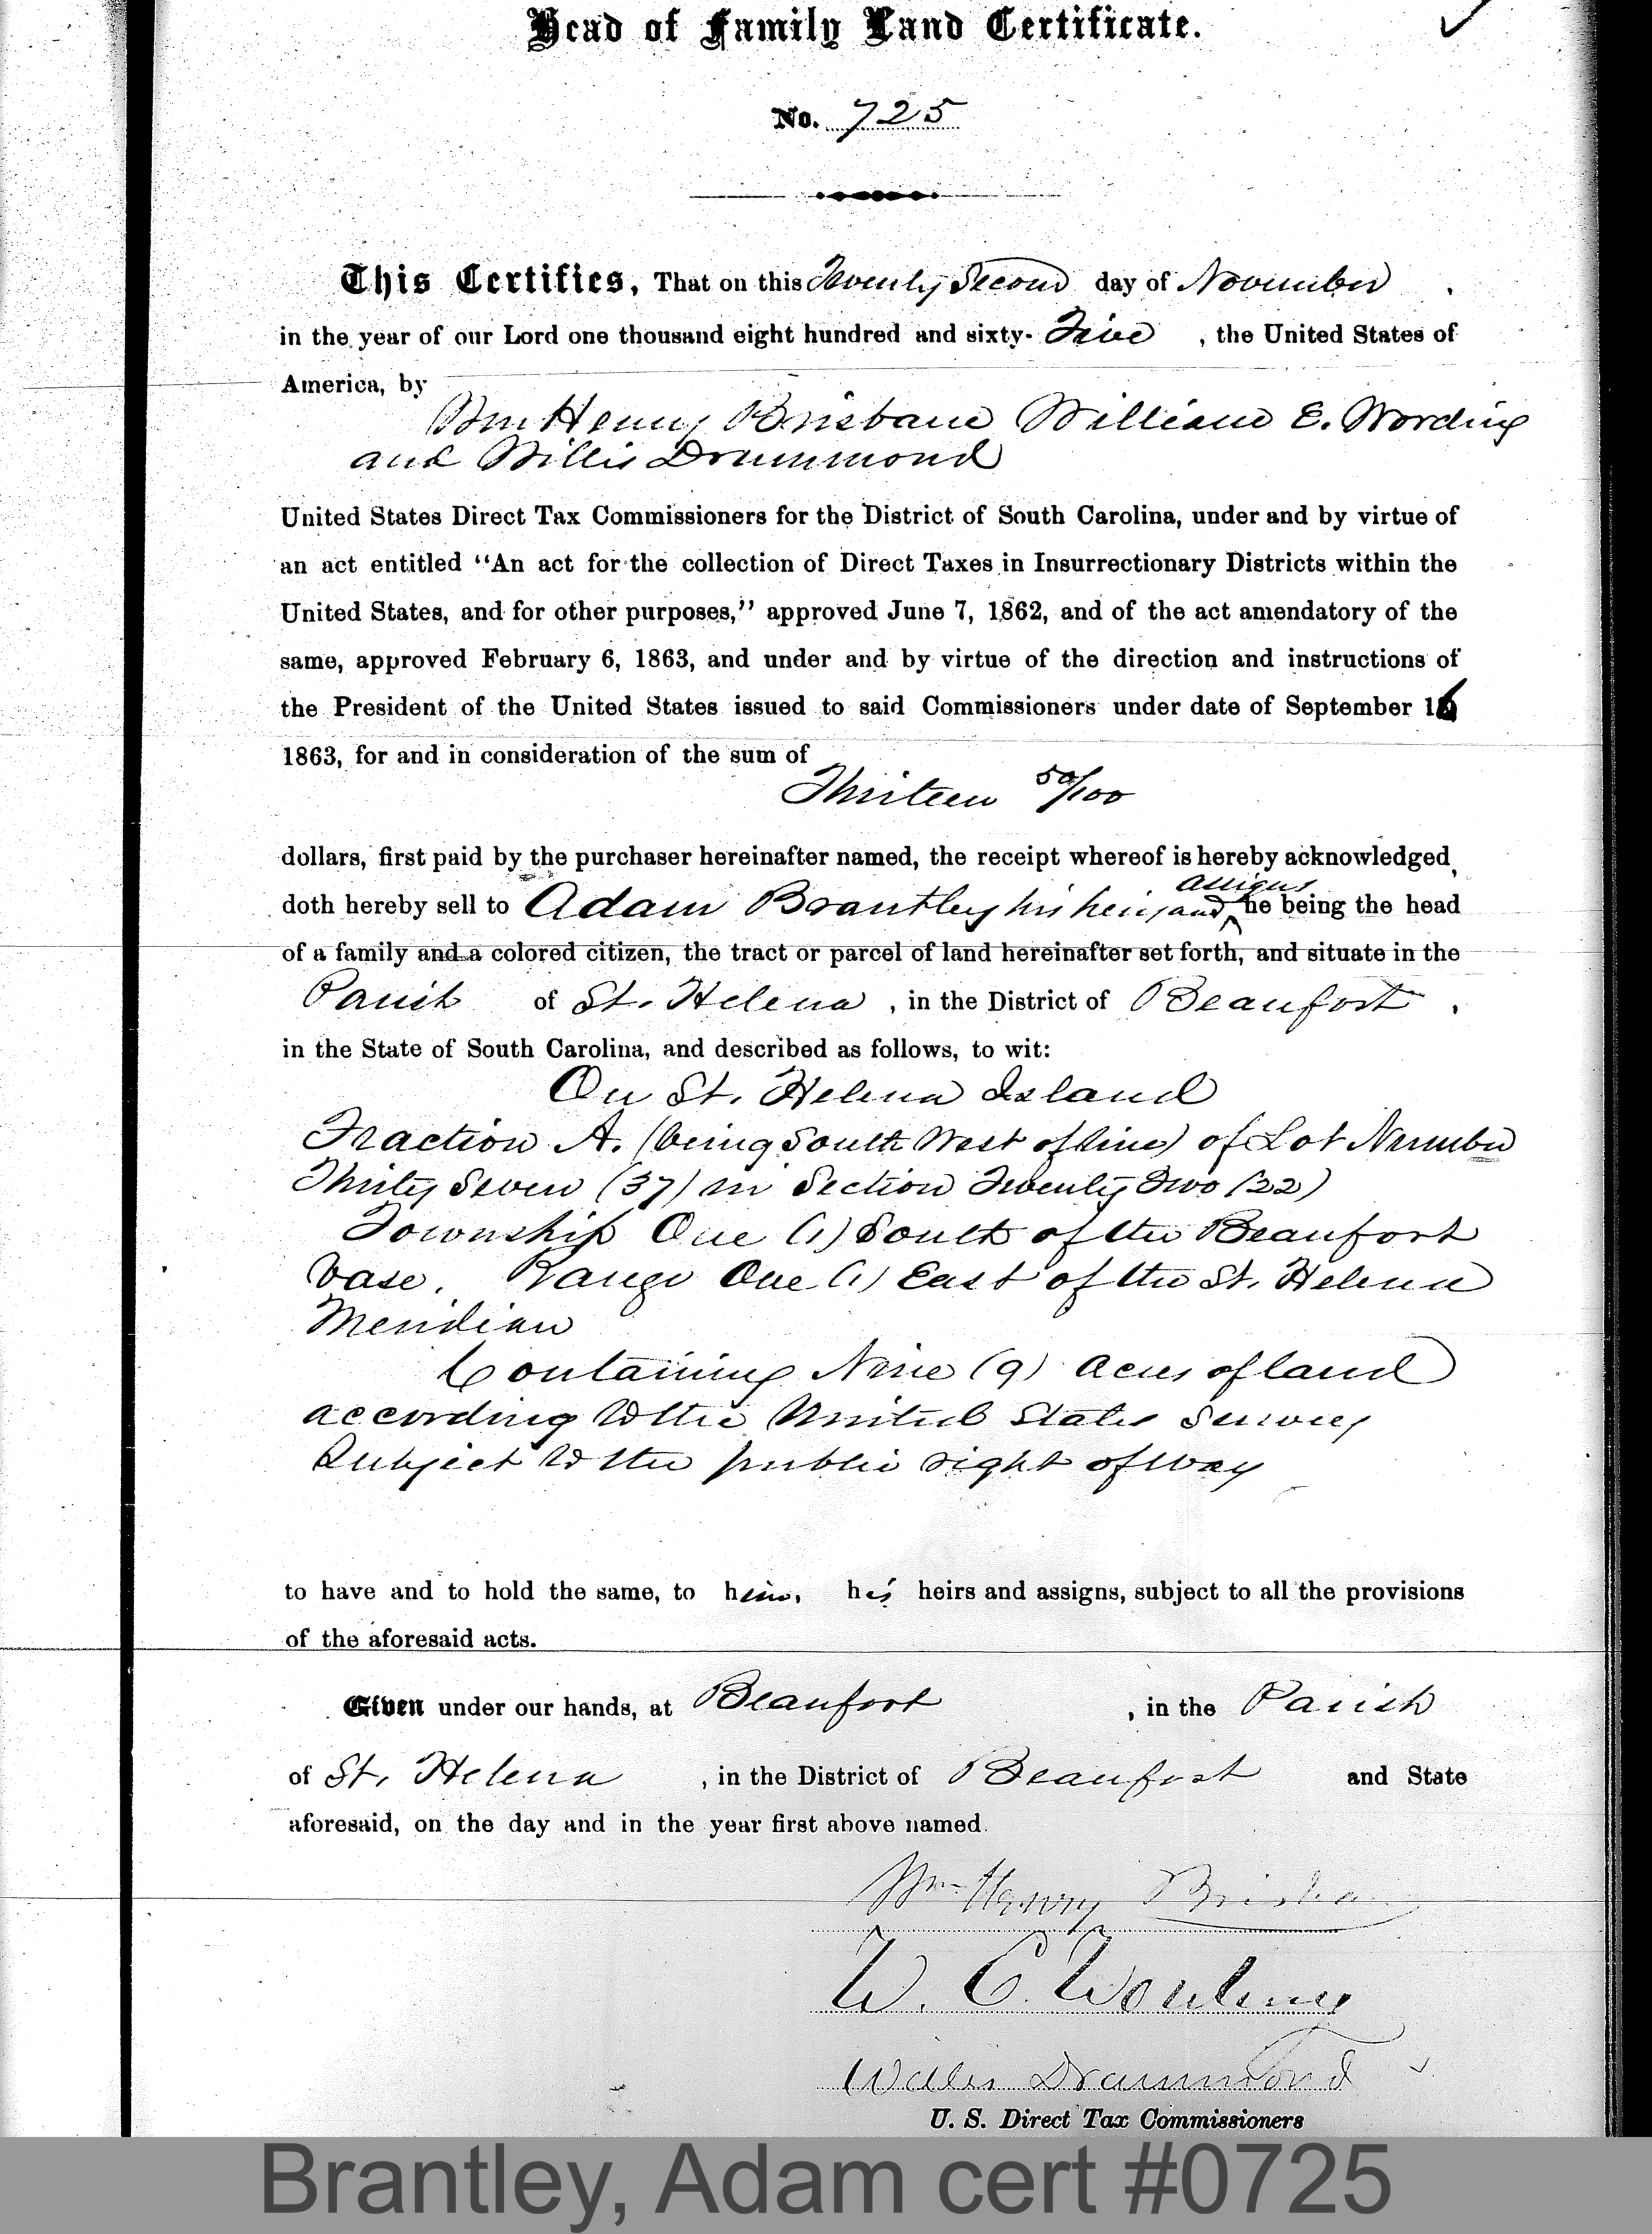 Head of Family Land Certificate.
No. 725
This Certifies, That on this Twenty Second day of November
in the year of our Lord one thousand eight hundred and sixty-Five, the United States of
America, by
Wm Henry Brisbane William E. Wording
and Willis Drummond
United States Direct Tax Commissioners for the District of South Carolina, under and by virtue of
an act entitled "An act for the collection of Direct Taxes in Insurrectionary Districts within the
United States, and for other purposes," approved June 7, 1862, and of the act amendatory of the
same, approved February 6, 1863, and under and by virtue of the direction and instructions of
the President of the United States issued to said Commissioners under date of September 16
1863, for and in consideration of the sum of
Thirteen 50/100
dollars, first paid by the purchaser hereinafter named, the receipt whereof is hereby acknowledged,
assigns
doth hereby sell to Adam Brantley his heirs and he being the head
of a family and a colored citizen, the tract or parcel of land hereinafter set forth, and situate in the
Parish of St. Helena, in the District of Beaufort,
in the State of South Carolina, and described as follows, to wit:
On St. Helena Island
Fraction A. (being South West of line) of Lot Number
Thirty Seven (37) in Section Twenty Two (22)
Township One (1) South of the Beaufort
base. Range One (1) East of the St. Helena
Meridian
Containing Nine (9) acres of land
according to the United States Survey
Subject to the public right of way
to have and to hold the same, to him, his heirs and assigns, subject to all the provisions
of the aforesaid acts.
Given under our hands, at Beaufort, in the Parish
of St. Helena, in the District of Beaufort and State
aforesaid, on the day and in the year first above named.
Wm Henry Brisbane
W. E. Wording
Willis Drummond
U. S. Direct Tax Commissioners
Brantley, Adam cert #0725